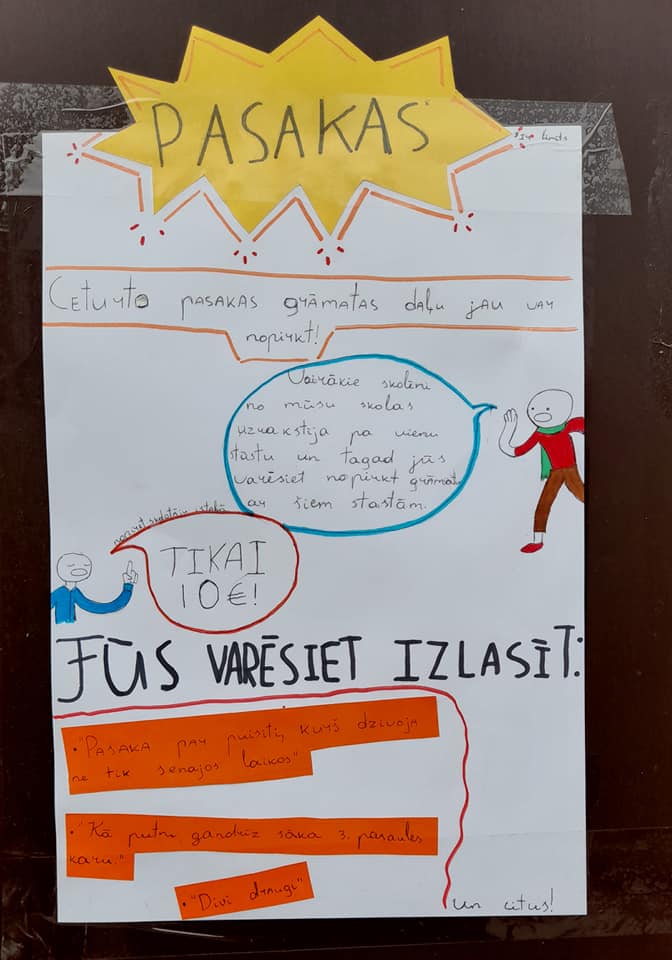 PASAKAS
Ceturto pasakas grāmatas daļu jau var
nopirkt!
Vairākie skolēni
no mūsu skolas
uzrakstīja pa vienu
stāstu un tagad jūs
varēsiet nopirkt grāmatu
ar šiem stāstām.
nopirkt skolotāju istabā
TIKAI
10€!
JŪS VARĒSIET IZLASĪT:
• "Pasaka par puisīti, kurš dzīvoja
ne tik senajos laikos"
• "Kā putni gandrīz sāka 3. pasaules
karu."
• "Divi draugi"
un citus!